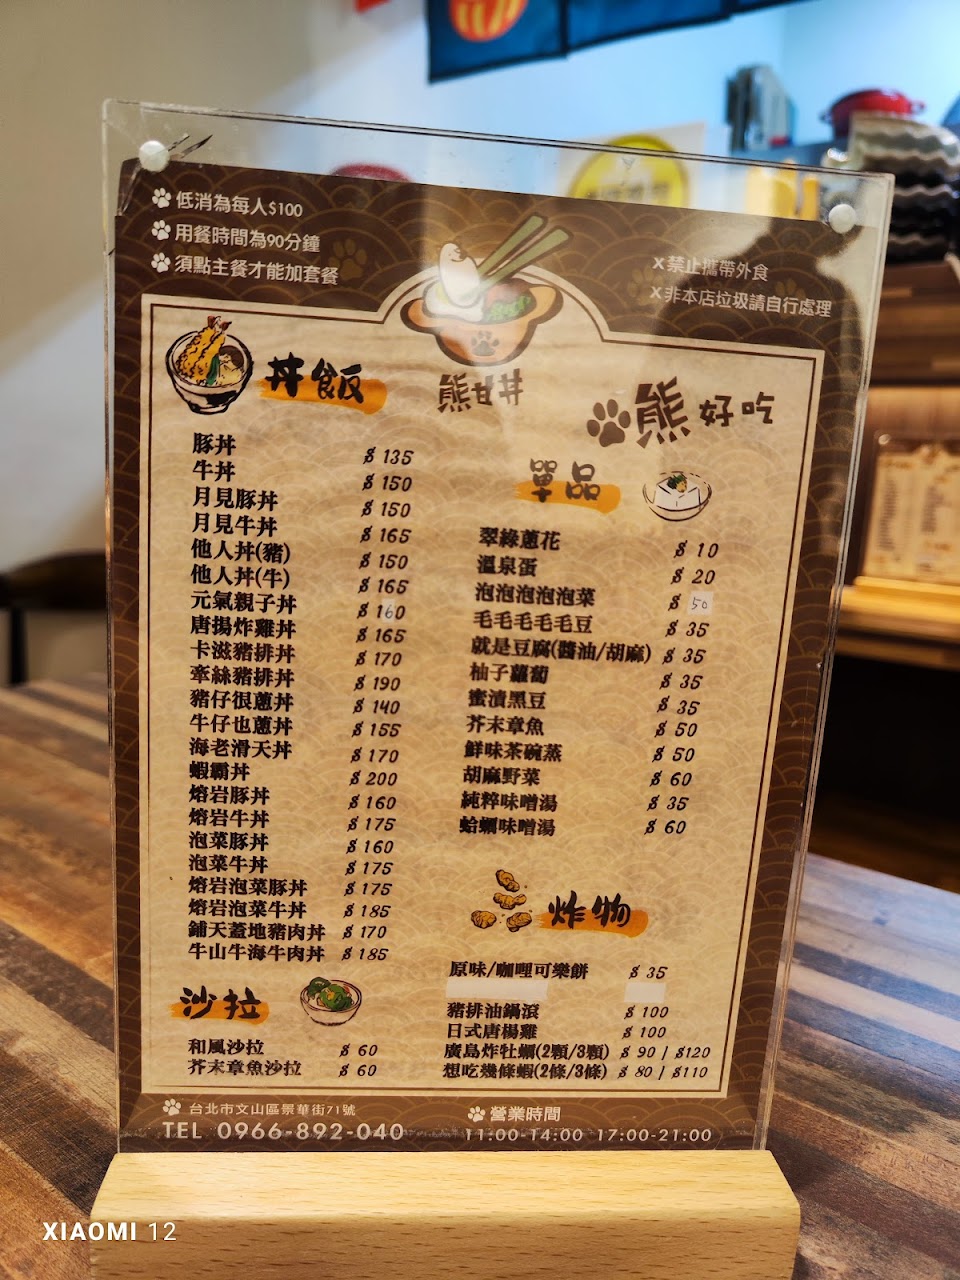 低消為每人$100
用餐時間為90分鐘
須點主餐才能加套餐
X禁止攜帶外食
X非本店垃圾請自行處理
熊甘丼
熊好吃
丼飯
豚丼 $ 135
牛丼 $ 150
月見豚丼 $ 150
月見牛丼 $ 165
他人丼(豬) $ 150
他人丼(牛) $ 165
元氣親子丼 $ 160
唐揚炸雞丼 $ 165
卡滋豬排丼 $ 170
牽絲豬排丼 $ 190
豬仔很蔥丼 $ 140
牛仔也蔥丼 $ 155
海老滑天丼 $ 170
蝦霸丼 $ 200
熔岩豚丼 $ 160
熔岩牛丼 $ 175
泡菜豚丼 $ 160
泡菜牛丼 $ 175
熔岩泡菜豚丼 $ 175
熔岩泡菜牛丼 $ 185
鋪天蓋地豬肉丼 $ 170
牛山牛海牛肉丼 $ 185
沙拉
和風沙拉 $ 60
芥末章魚沙拉 $ 60
單品
翠綠蔥花 $ 10
溫泉蛋 $ 20
泡泡泡泡泡菜 $ 50
毛毛毛毛毛豆 $ 35
就是豆腐(醬油/胡麻) $ 35
柚子蘿蔔 $ 35
蜜漬黑豆 $ 35
芥末章魚 $ 50
鮮味茶碗蒸 $ 50
胡麻野菜 $ 60
純粹味噌湯 $ 35
蛤蠣味噌湯 $ 60
炸物
原味/咖哩可樂餅 $ 35
豬排油鍋滾 $ 100
日式唐楊雞 $ 100
廣島炸牡蠣(2顆/3顆) $ 90 / $120
想吃幾條蝦(2條/3條) $ 80 / $110
台北市文山區景華街71號
TEL 0966-892-040
營業時間
11:00-14:00 17:00-21:00
XIAOMI 12